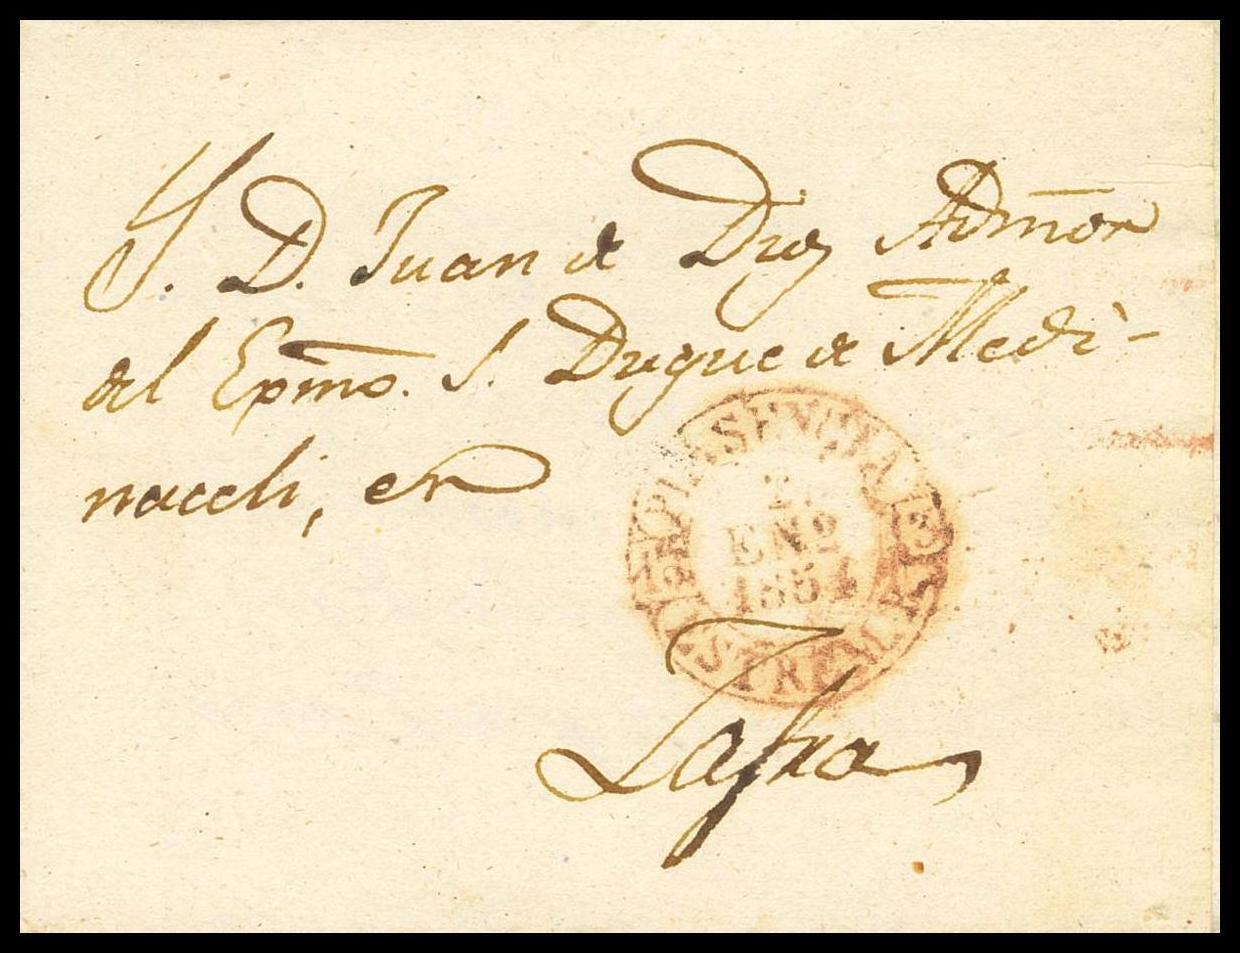 S. D. Juan de Diez Admor
del Exmo. S. Duque de Medi-
naceli, en
2
ENº
1854
Zafra